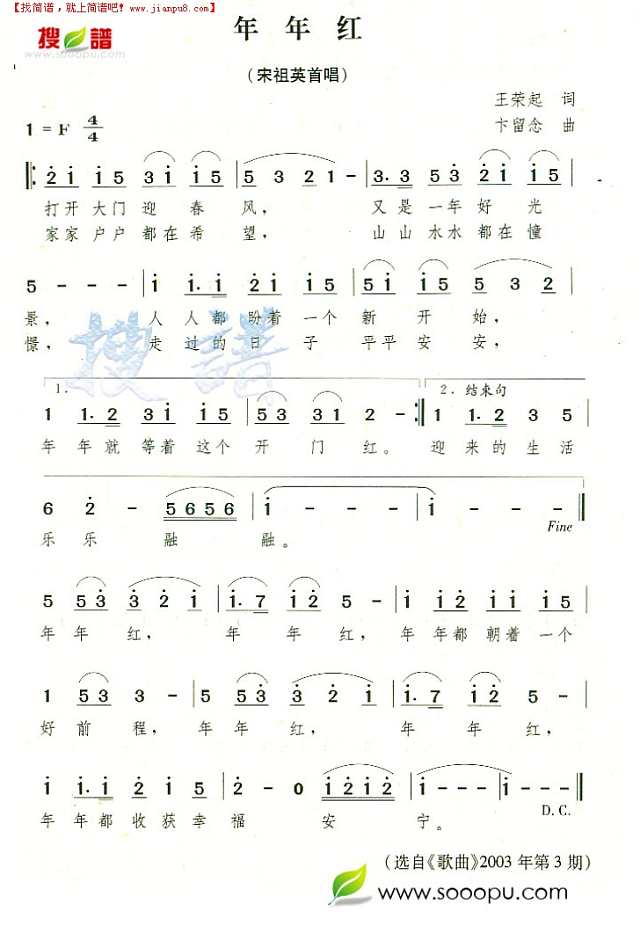 【找简谱，就上简谱吧! www.jianpu8.com】
搜谱
www.sooopu.com
年 年 红
（宋祖英首唱）
王荣起 词
1 = F 4/4
卞留念 曲
2 1 1 5 3 1 1 5 | 5 3 2 1 - | 3. 3 5 3 2 1 1 5 |
打开大门迎 春 风， 又是一年好 光
家家户户都在希 望， 山山水水都在憧
5 - - - | 1 1. 1 2 1 1 5 | 5 1 1 2 5 3 2 |
景， 人人都盼着一个 新 开 始，
憬， 走过的日 子 平平安 安，
1. 2. 结束句
1 1. 2 3 1 1 5 | 5 3 3 1 2 - :| 1 1. 2 3 5 |
年 年就等着这个 开 门 红。 迎 来的生活
6 2 - 5656 | 1 - - - | 1 - - - ‖
乐 乐 融 融。
Fine
5 5 3 3 2 1 | 1. 7 1 2 5 - | 1 1 2 1 1 1 5 |
年 年 红， 年 年 红， 年 年都朝着一个
1 5 3 3 - | 5 5 3 3 2 1 | 1. 7 1 2 3 - |
好 前 程， 年 年 红， 年 年 红，
1 1. 1 2 1 5 | 2 - 0 1212 | 1 - 1 - ‖
年 年都收获幸 福 安 宁。
D.C.
（选自《歌曲》2003 年第 3 期）
www.sooopu.com